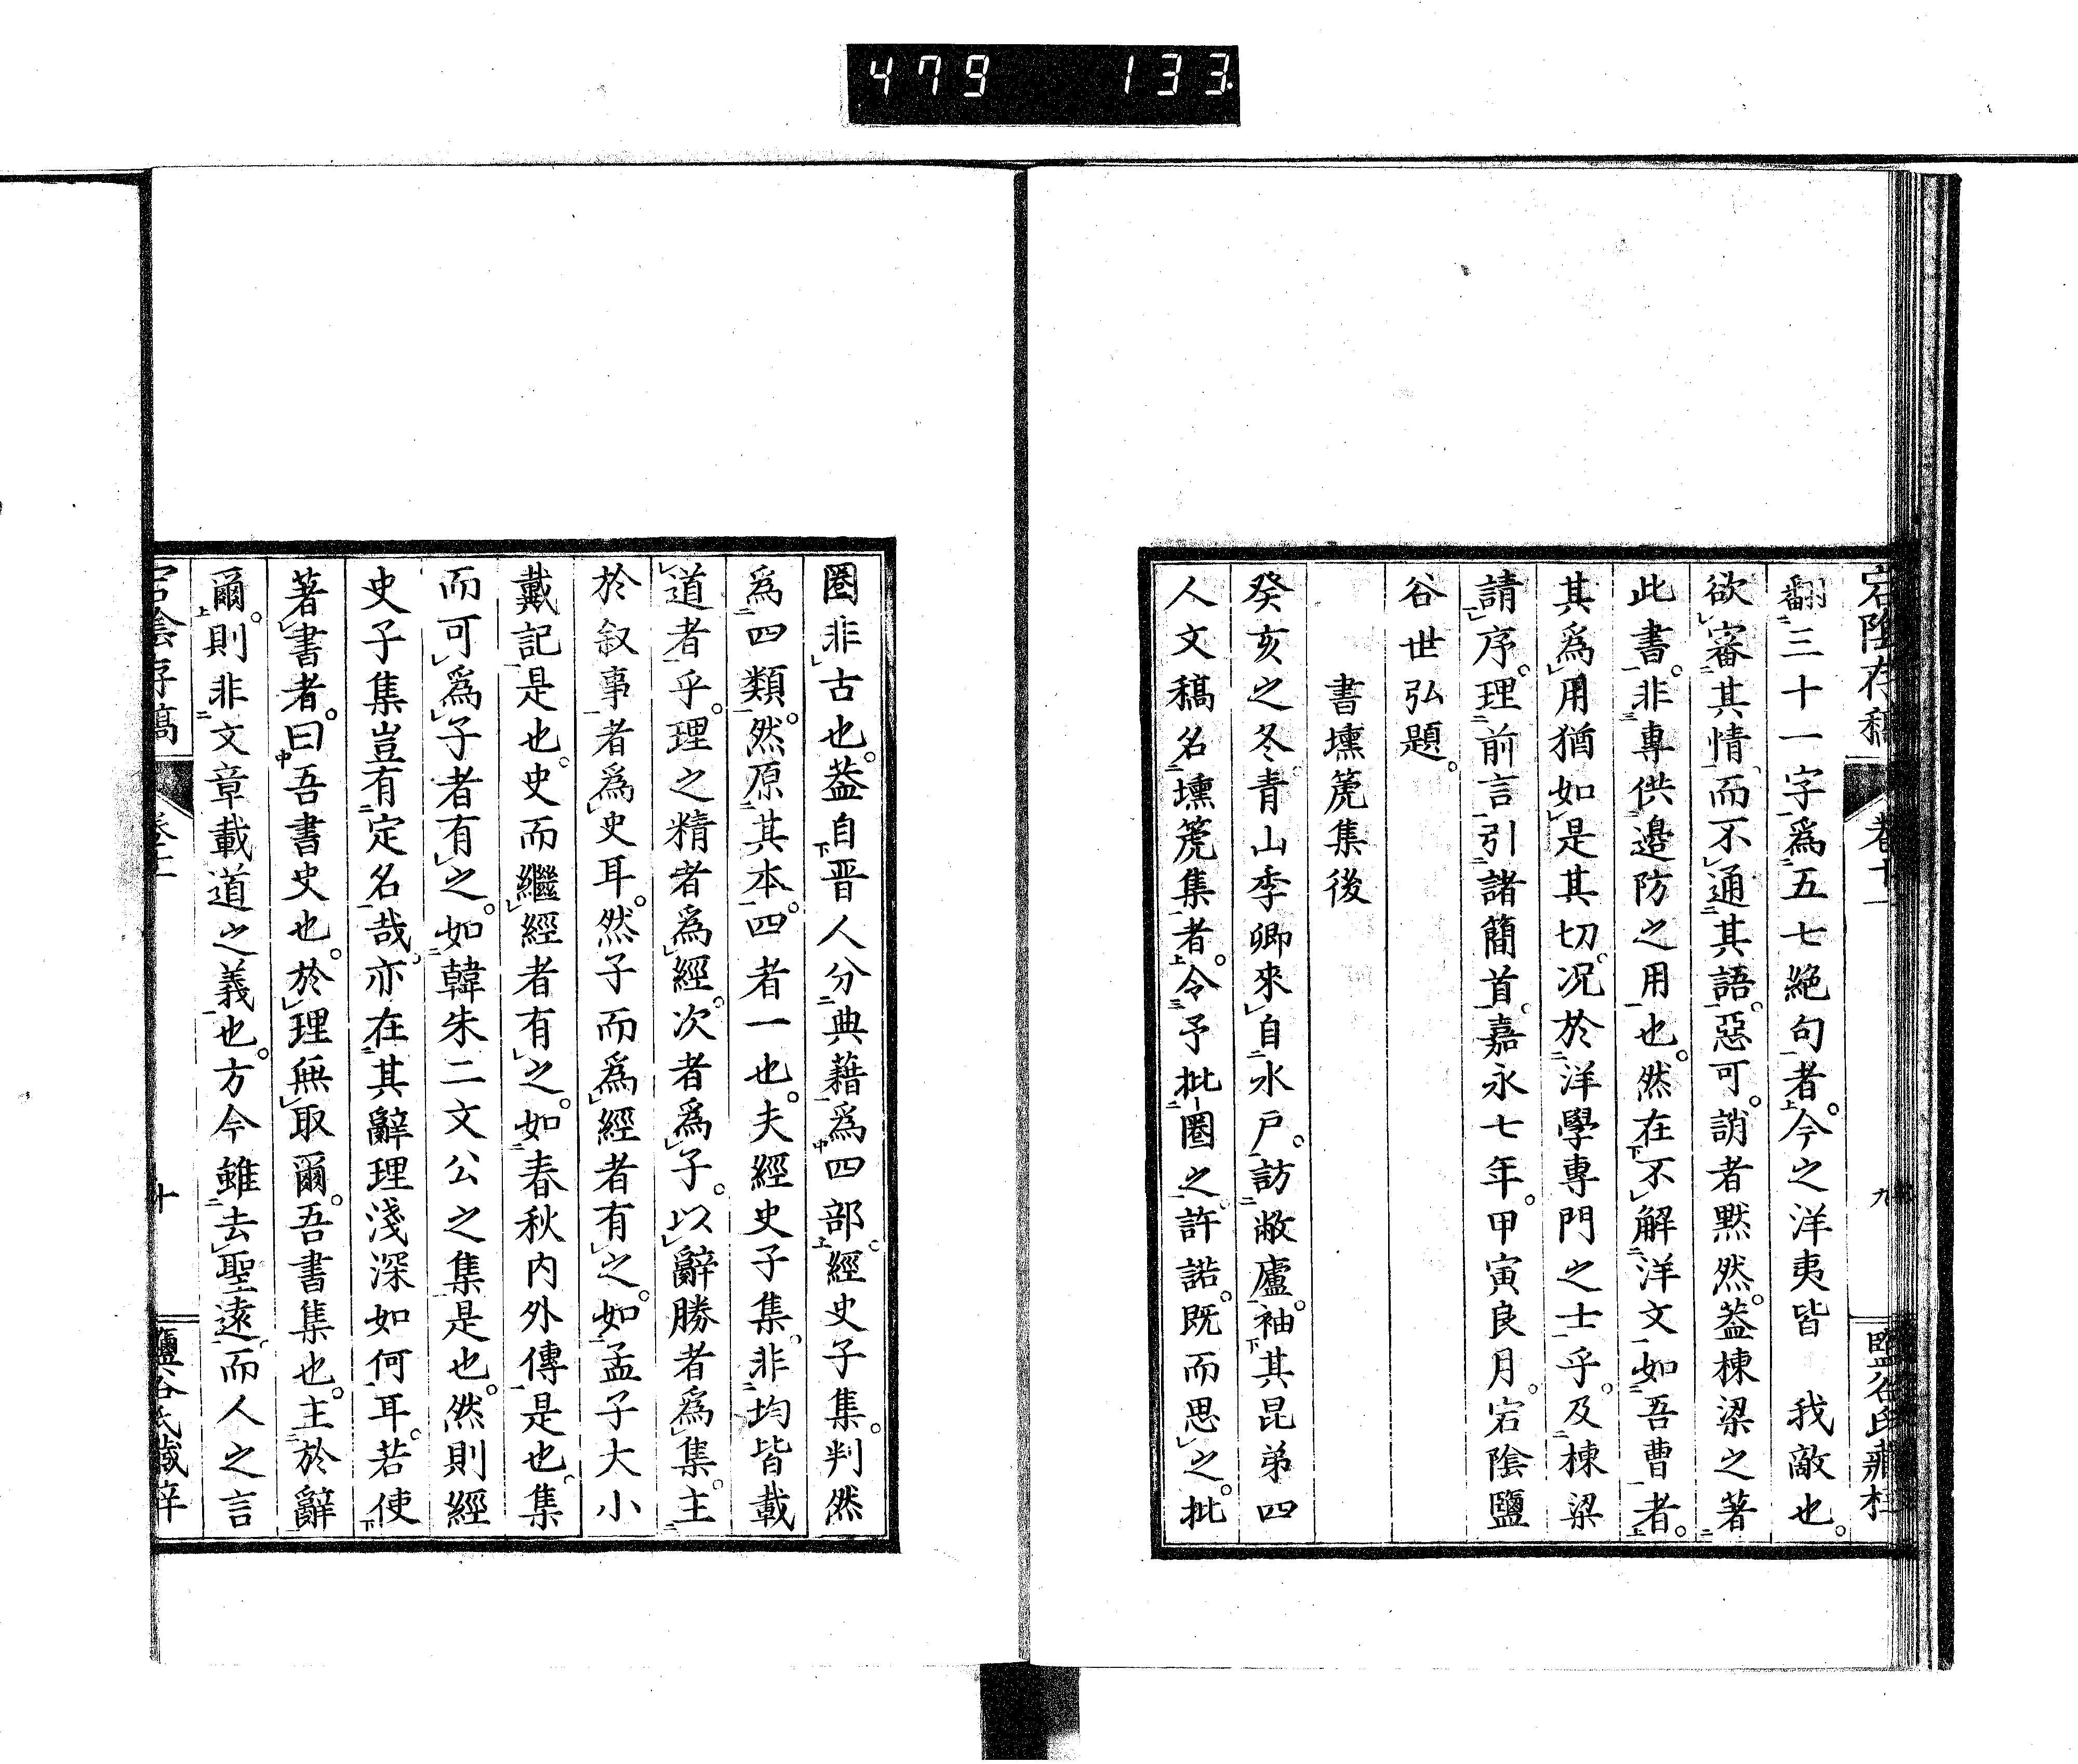 479 133
宕陰存稿 卷十一 九 鹽谷氏藏梓
翻三十一字爲五七絕句者。今之洋夷皆 我敵也。
欲審其情、而不通其語。惡可。誚者默然。葢棟梁之著
此書。非專供邊防之用也。然在不解洋文如吾曹者。
其爲用猶如是其切。況於洋學專門之士乎。及棟梁
請序。理前言引諸簡首。嘉永七年。甲寅良月。宕陰鹽
谷世弘題。
書壎箎集後
癸亥之冬。青山季卿來自水戶。訪敝廬。袖其昆弟四
人文稿名壎箎集者。令予批圈之。許諾。既而思之。批
圈非古也。葢自晋人分典藉爲四部。經史子集。判然
爲四類。然原其本。四者一也。夫經史子集。非均皆載
道者乎。理之精者爲經。次者爲子。以辭勝者爲集。主
於叙事者爲史耳。然子而爲經者有之。如孟子大小
戴記是也。史而繼經者有之。如春秋內外傳是也。集
而可爲子者有之。如韓朱二文公之集是也。然則經
史子集豈有定名哉。亦在其辭理淺深如何耳。若使
著書者。曰吾書史也。於理無取爾。吾書集也。主於辭
爾。則非文章載道之義也。方今雖去聖遠。而人之言
宕陰存稿 卷十一 十 鹽谷氏藏梓